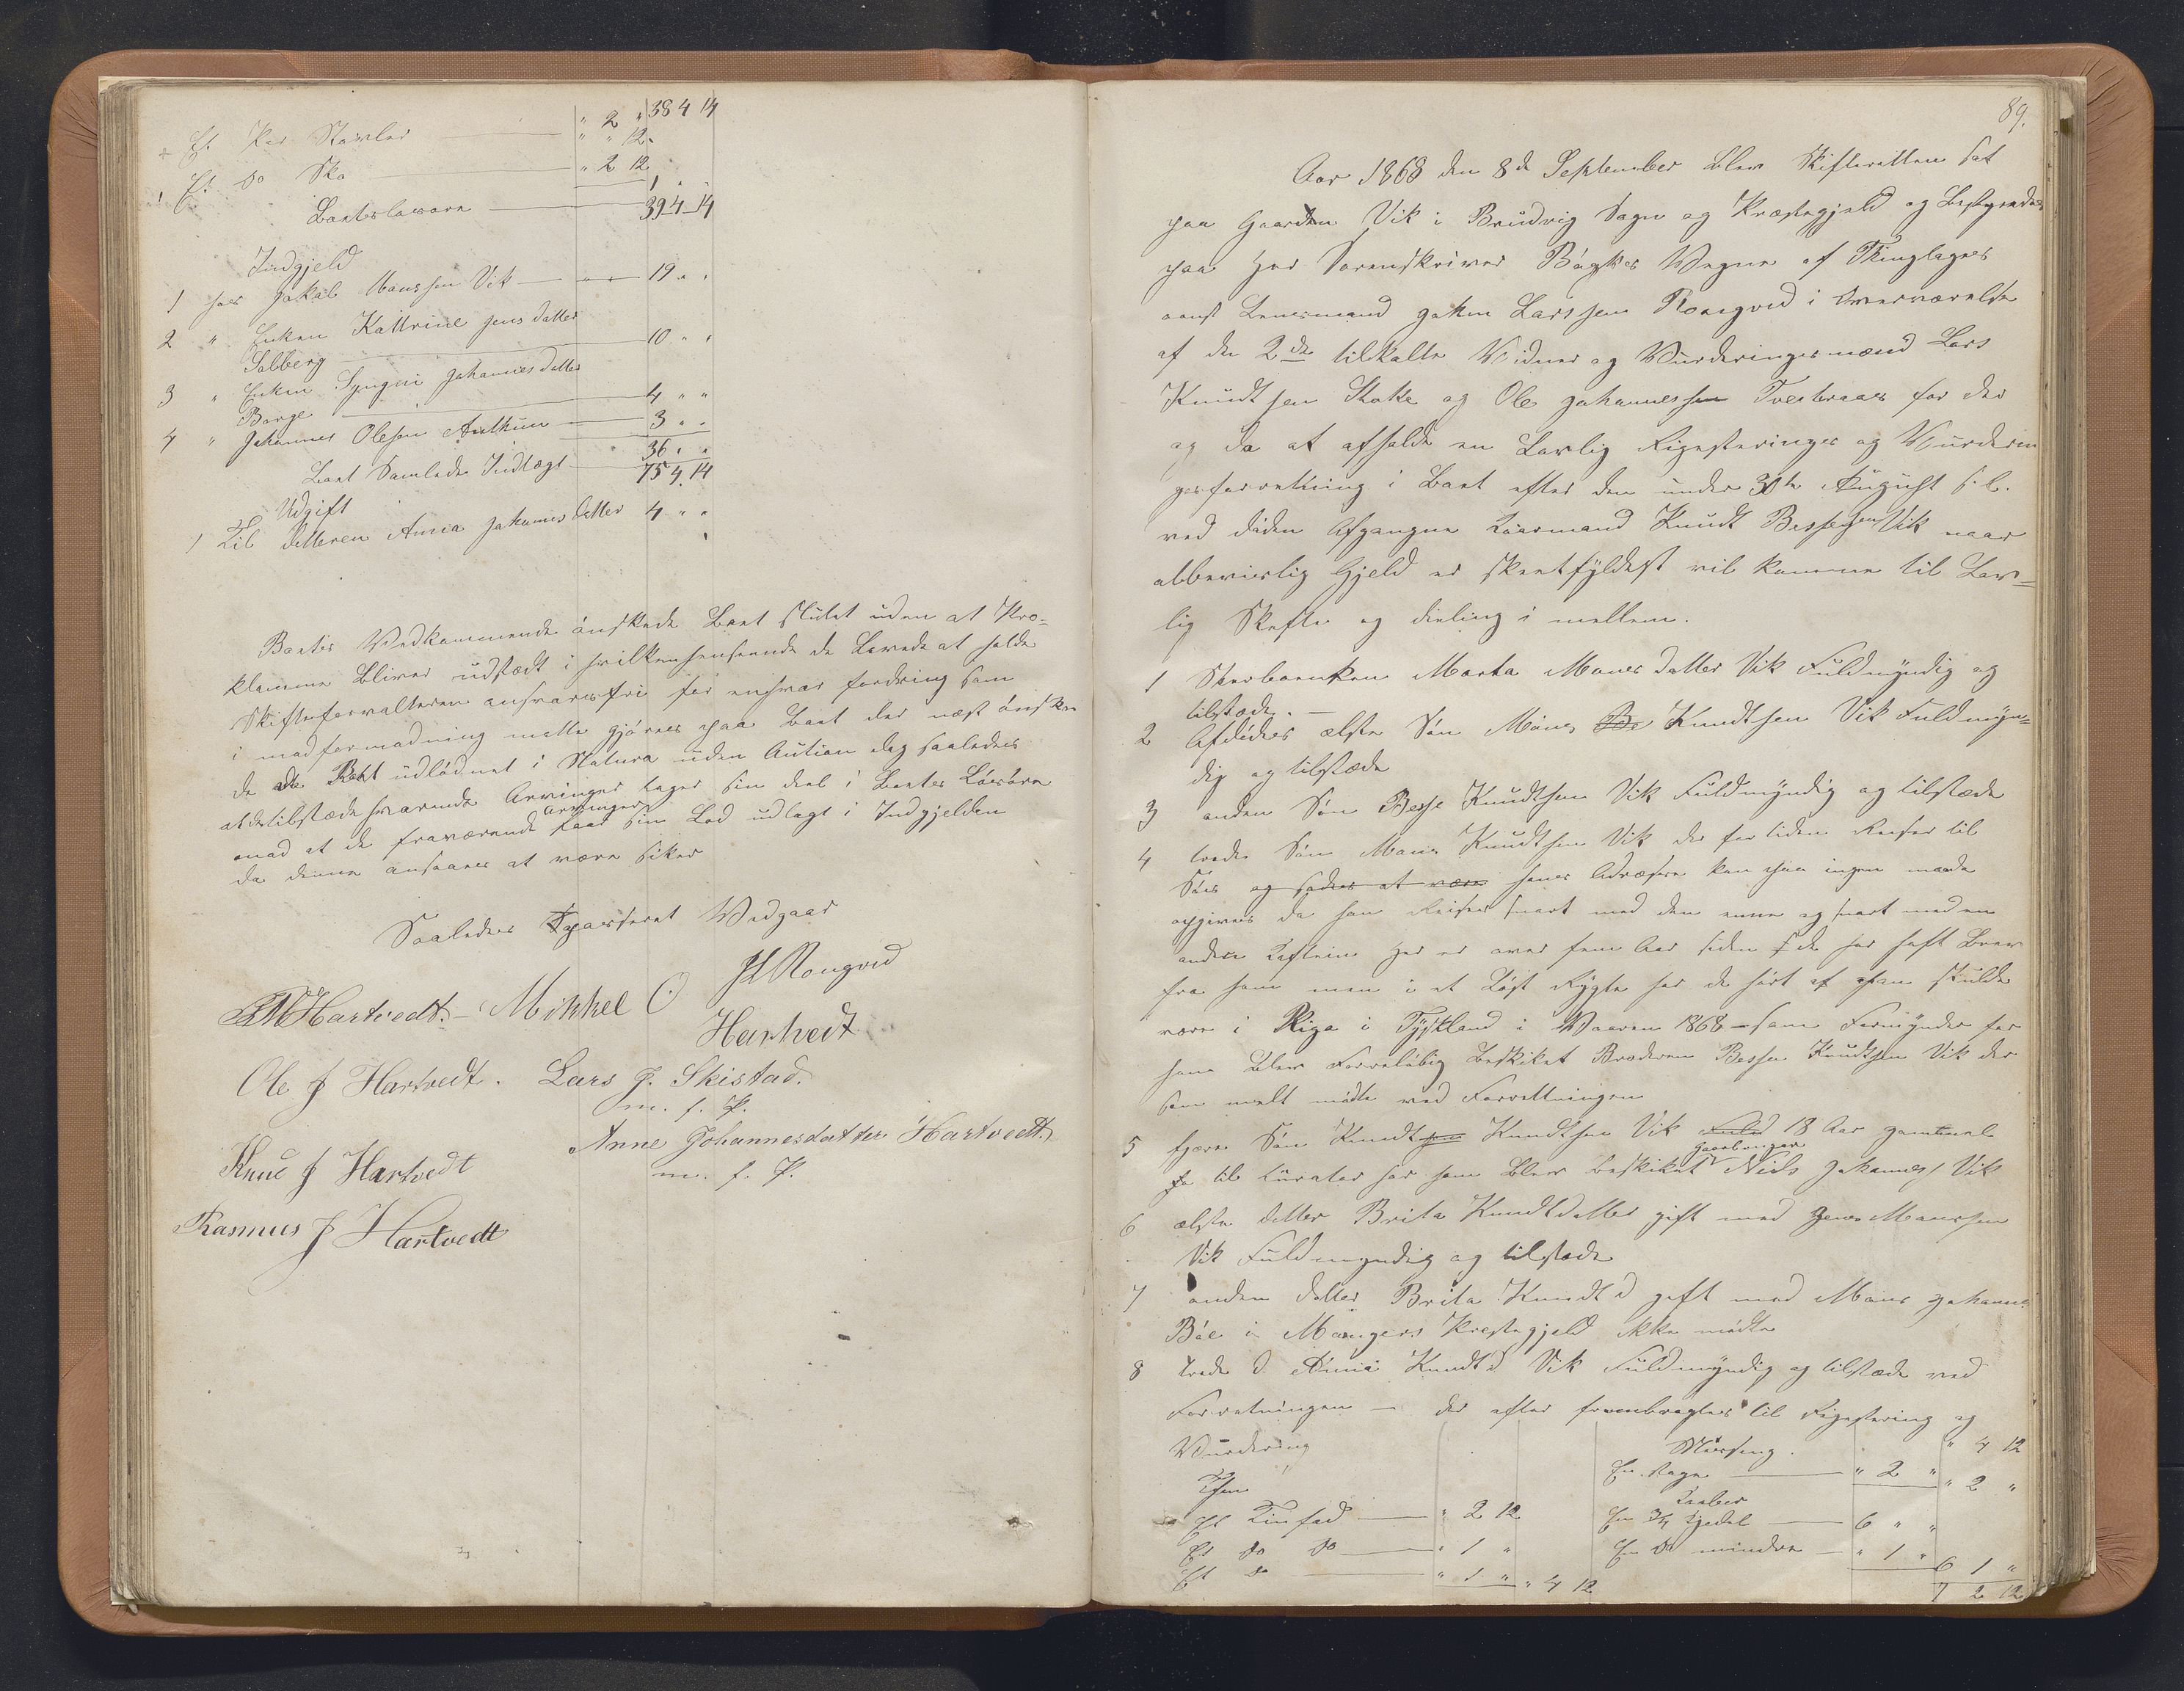 38 4 14
+ Et Par Støvler " 2 "
" " 12
Et do Sko " 2 12
1 " "
Boets løsøre 39 4 14
Indgjeld
1 hos Jakob Monssen Vik 19 " "
2 " Enken Kattrine Jens datter
Solberg 10 " "
3 " Enken Syngni Johannes datter
Borge 4 " "
4 " Johannes Olesen Authun 3 " "
36 " "
Boet Samlede Indtægt 75 4 14
Udgift
1 Til datteren Anna Johannes datter 4 " "
Boets Vedkommende ønskede Boet sluttet uden at Pro=
klamma bliver udstædt i hvilken henseende de lovede at holde
Skifteforvalteren ansvarsfri for enhver fordring som
i mod formodning matte gjøres paa Boet der næst ønske
de Boet udlødnet i Natura uden Aution dog saaledes
at de tilstædeværende Arvinger tager sin deel i Boets Løsøre
mod at de fraværende Arvinger faar sin Lod udlagt i Indgjelden
da denne ansaaes at være sikker
Saaledes Passeret Vedgaar
JL Rongved
Hartvedt. Mikkel O
Hartvedt
Ole J Hartvedt. Lars J. Skistad.
m. f. P.
Anne Johannesdatter Hartvedt.
m. f. P.
Knud J Hartvedt
Rasmus J Hartvedt
89.
Aar 1868 den 8de September blev Skifteretten sat
paa Gaarden Vik i Brudvig Sogn og Præstegjeld og Bestyredes
paa Hr Sorenskriver Bøgkes Vegne af Thinglagets
const Lensmand Johan Larssen Rongved i Overværelse
af de 2de tilkalte Vidner og Vurderingsmænd Lars
Knudtsen Stoke og Ole Johannessen Tvedteraas for der
og da at afholde en Lovlig Rigesterings og Vurderin
gsforretning i Boet efter den under 30te August f. l.
ved døden Afgangne Kaarmand Knudt Bessesen Vik naar
abbeviislig Gjeld er skeet fyldest vil komme til Lov=
lig Skifte og deeling i mellem.
1 Sterboenken Marta Mons datter Vik Fuldmyndig og
tilstæde. —
2 Afdødes ælste Søn Mons Knudtsen Vik Fuldmyn=
dig og tilstæde
3 anden Søn Besse Knudtsen Vik Fuldmyndig og tilstæde
4 trede Søn Mons Knudtsen Vik der for tiden Reiser til
Søes og hans Adræsse kan paa ingen maade
opgives da han Reiser snart med den enne og snart med en
anden Kaptein her er over fem Aar siden de har haft Brev
fra ham men i et Løst Rygte har de hørt at han skulde
være i Riga i Tyskland i Vaaren 1868 — som Formynder for
ham blev Forreløbig Beskikket Broderen Besse Knudtsen Vik der
som melt mødte ved Forrettningen
5 fjære Søn Knudt Knudtsen Vik 18 Aar gammel
til Curator for ham blev beskikket Gaardbruger Niels Johannes Vik
6 ælste datter Brita Knudtdatter gift med Jens Monssen
Vik Fuldmyndig og tilstæde
7 anden datter Brita Knudtd gift med Mons Johann:
Bøe i Mangers Præstegjeld ikke mødte
8 trede d Anna Knudtd Vik Fuldmyndig og tilstæde ved
Forretningen — der efter frembragtes til Rigestering og
Vurdering
Thin
Et Tinfad " 2 12
Et do do " 1 "
Et do " 1 " " 4 12
" 4 12
Missing.
En Kage " 2 " " 2 "
Kaaber
En 3/4 Kjedel 6 " "
En do mindre " 1 " 6 1 "
7 2 12